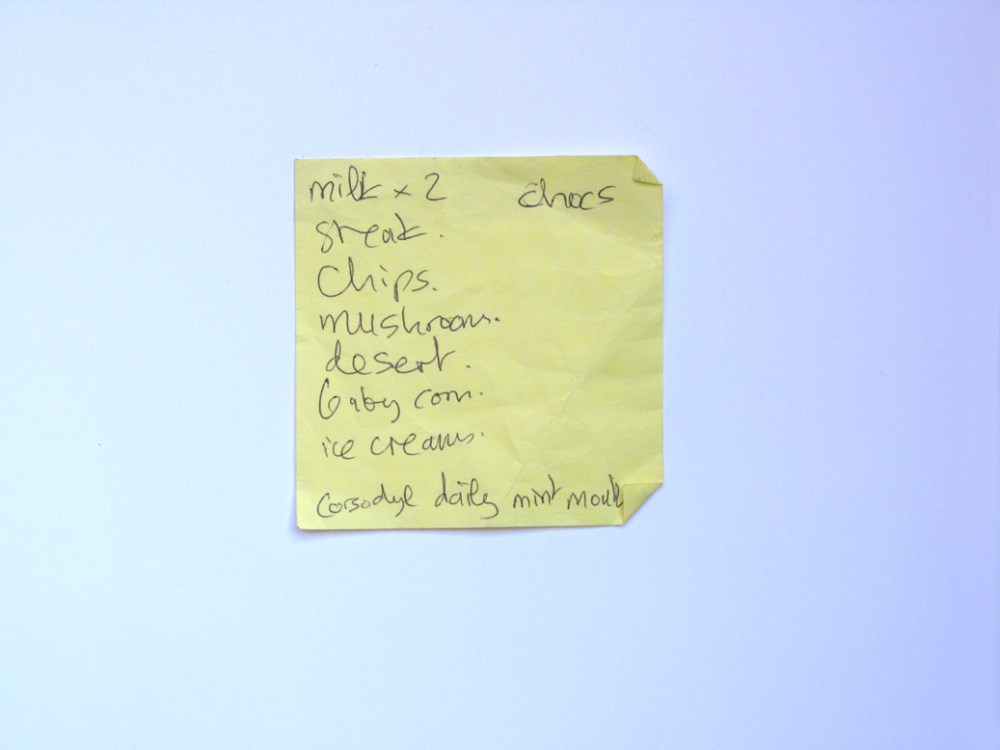 milk x 2 chocs
steak.
Chips.
mushrooms.
desert.
baby corn.
ice creams.
Corsodyl daily mint